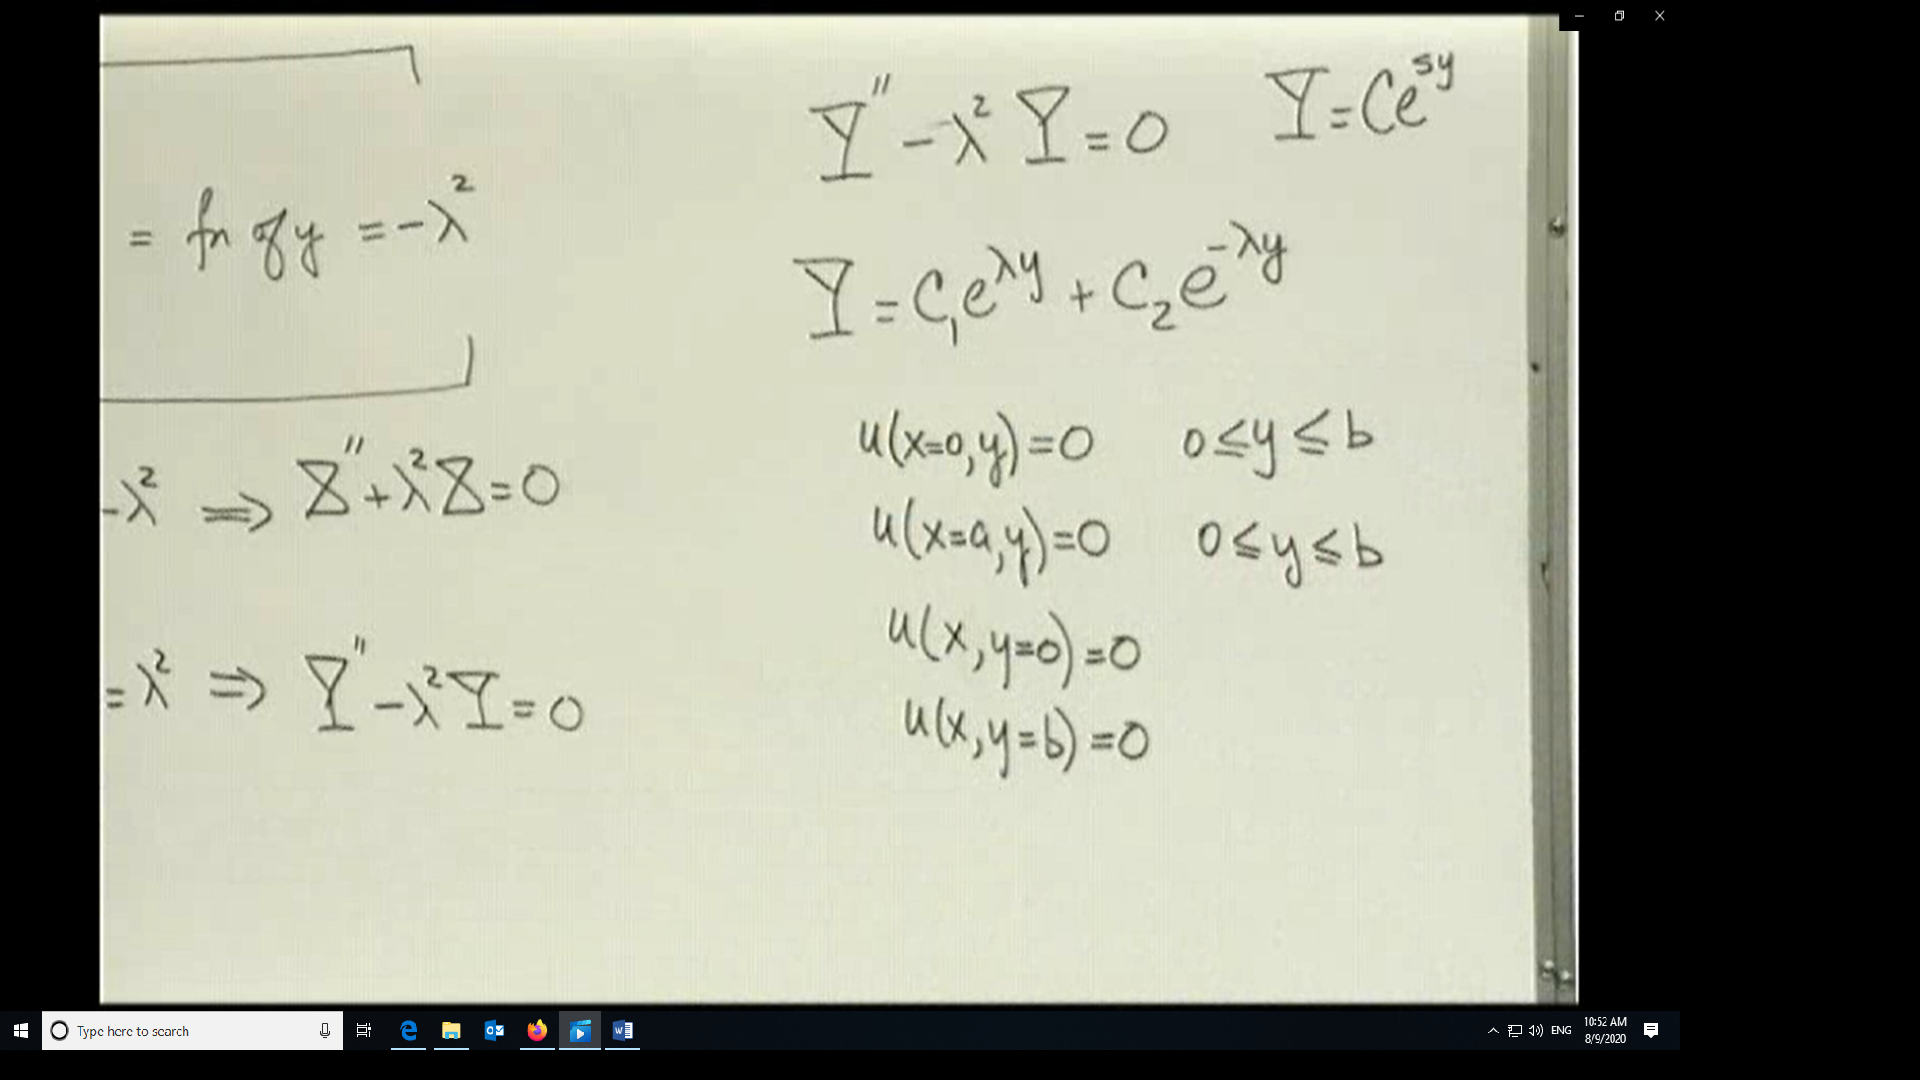 = fn of y = -λ²
-λ² ⟹ X'' + λ²X = 0
= λ² ⟹ Y'' - λ²Y = 0
Y'' - λ² Y = 0 Y = Ce^{sy}
Y = C₁e^{λy} + C₂e^{-λy}
u(x=0,y)=0 0≤y≤b
u(x=a,y)=0 0≤y≤b
u(x,y=0)=0
u(x,y=b)=0
Type here to search
ENG
10:52 AM
8/9/2020